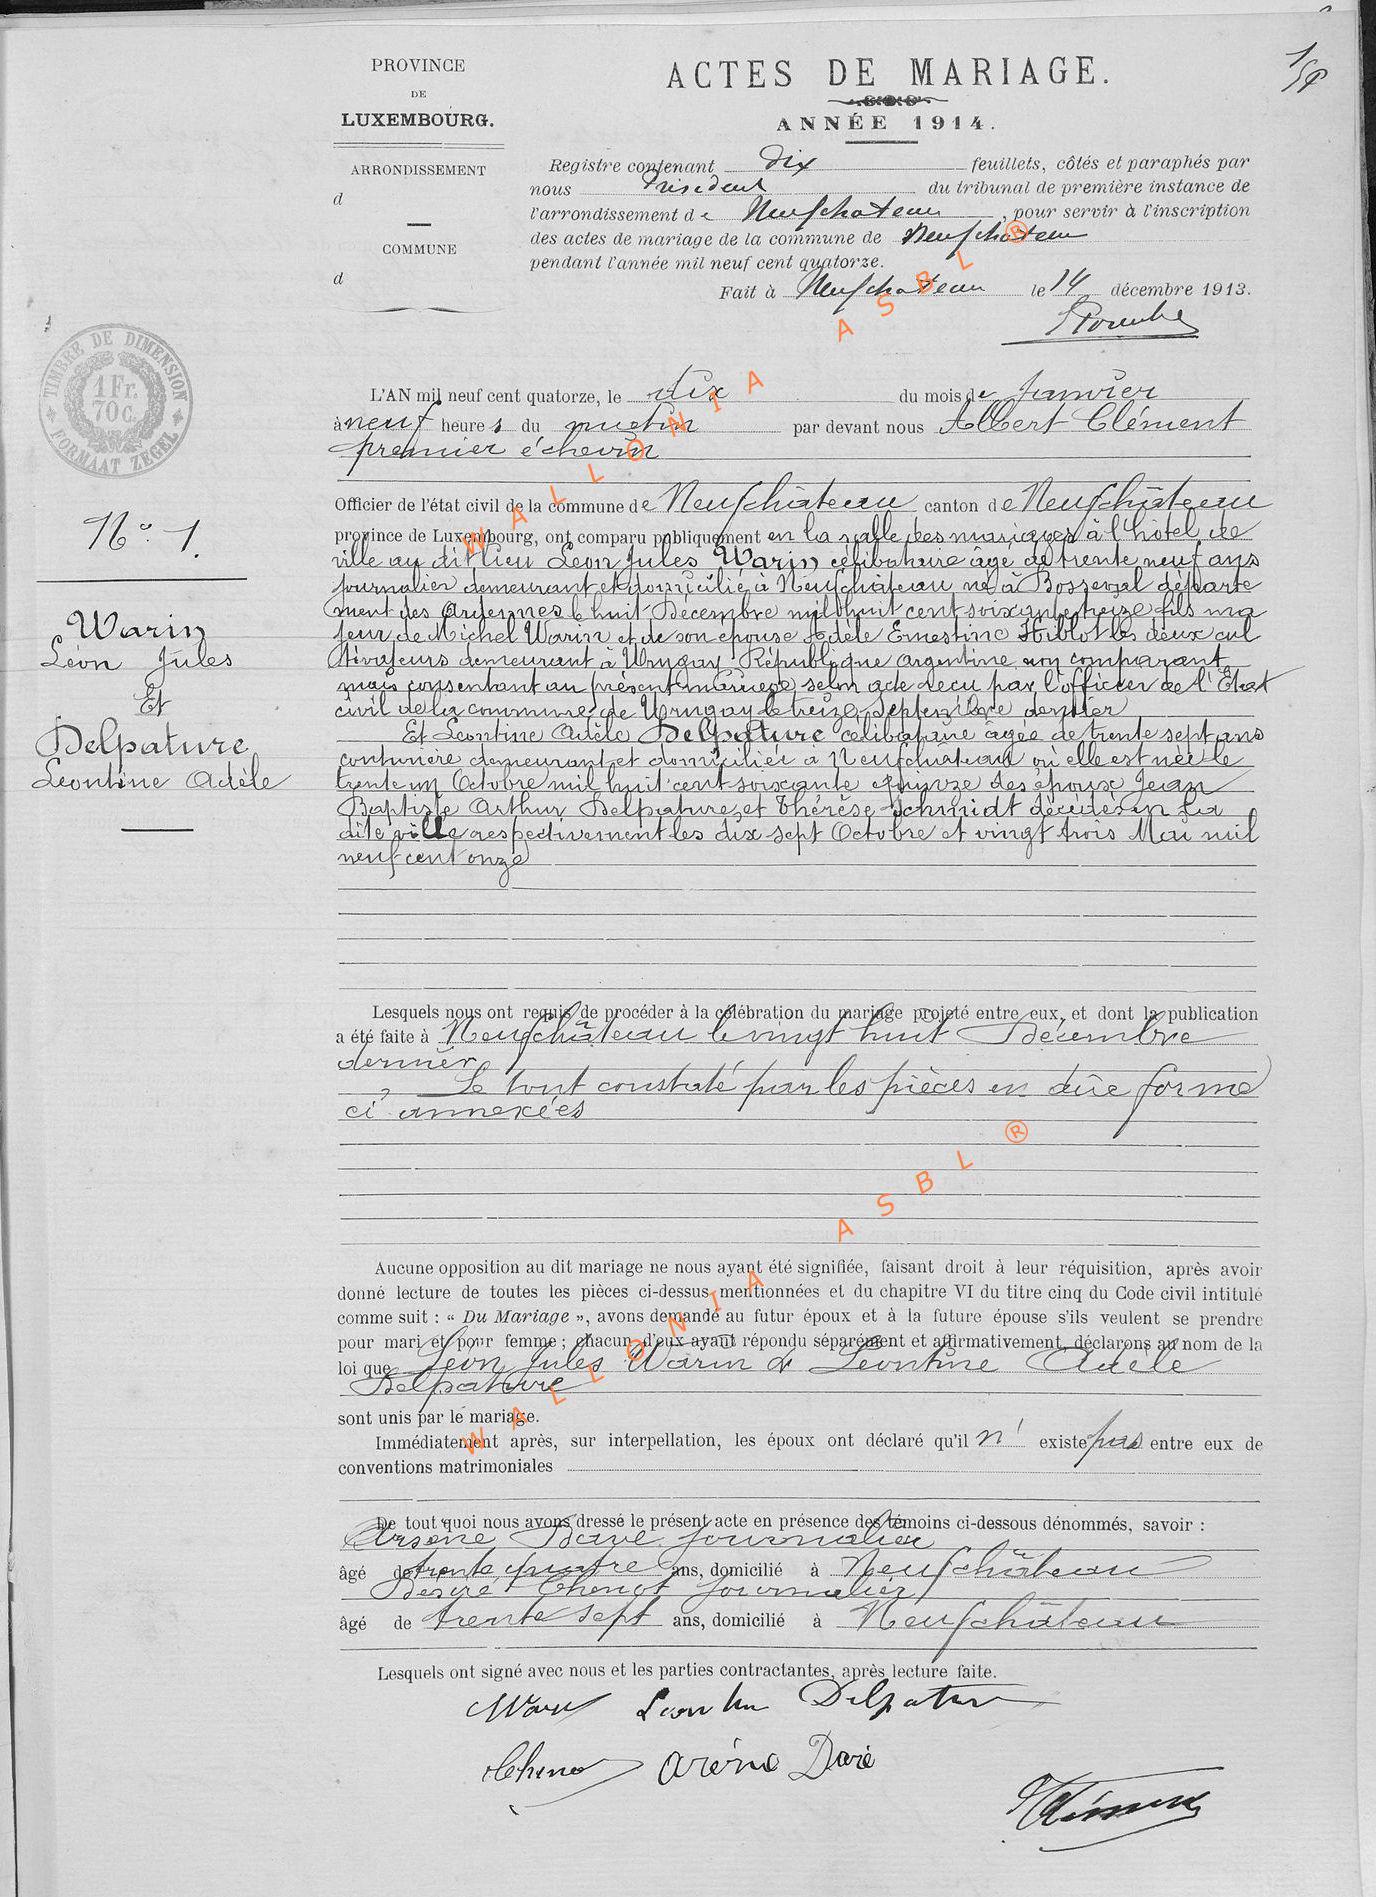 PROVINCE
DE
LUXEMBOURG.
ARRONDISSEMENT
d
COMMUNE
d
ACTES DE MARIAGE.
ANNÉE 1914.
Registre contenant dix feuillets, côtés et paraphés par
nous Président du tribunal de première instance de
l'arrondissement de Neufchateau, pour servir à l'inscription
des actes de mariage de la commune de Neufchateau
pendant l'année mil neuf cent quatorze.
Fait à Neufchateau le 14 décembre 1913.
TIMBRE DE DIMENSION
1 Fr.
70 C.
FORMAAT ZEGEL
N° 1.
Warin
Léon Jules
Et
Delpature
Leontine Adèle
L'AN mil neuf cent quatorze, le dix du mois de Janvier
à neuf heures du matin par devant nous Albert Clément
premier échevin
Officier de l'état civil de la commune de Neufchâteau canton de Neufchâteau
province de Luxembourg, ont comparu publiquement en la salle des mariages à l'hôtel de
ville au dit lieu Leon Jules Warin célibataire âgé de trente neuf ans
journalier demeurant et domicilié à Neufchâteau né à Bosseval départe
ment des Ardennes le huit Decembre mil huit cent soixante treize fils ma
jeur de Michel Warin et de son epouse Adèle Ernestine Hiblot les deux cul
tivateurs demeurant à Urugay République argentine non comparant
mais consentant au présent mariage selon acte recu par l'officier de l'Etat
civil de la commune de Urugay le treize Septembre dernier
Et Leontine Adèle Delpature célibataire âgée de trente sept ans
couturière demeurant et domiciliée à Neufchâteau où elle est née le
trente un Octobre mil huit cent soixante quinze des époux Jean
Baptiste Arthur Delpature et Thérèse Schmidt décédés en la
dite ville respectivement les dix sept Octobre et vingt trois Mai mil
neuf cent onze
Lesquels nous ont requis de procéder à la célébration du mariage projeté entre eux, et dont la publication
a été faite à Neufchâteau le vingt huit Décembre
dernier
Le tout constaté par les pièces en dûe forme
ci annexées
Aucune opposition au dit mariage ne nous ayant été signifiée, faisant droit à leur réquisition, après avoir
donné lecture de toutes les pièces ci-dessus mentionnées et du chapitre VI du titre cinq du Code civil intitulé
comme suit : « Du Mariage », avons demandé au futur époux et à la future épouse s'ils veulent se prendre
pour mari et pour femme ; chacun d'eux ayant répondu séparément et affirmativement, déclarons au nom de la
loi que Léon Jules Warin & Léontine Adèle
Delpature
sont unis par le mariage.
Immédiatement après, sur interpellation, les époux ont déclaré qu'il n' existe pas entre eux de
conventions matrimoniales
De tout quoi nous avons dressé le présent acte en présence des témoins ci-dessous dénommés, savoir :
Arsène Daré journalier
âgé de trente quatre ans, domicilié à Neufchâteau
Désiré Thenot journalier
âgé de trente sept ans, domicilié à Neufchâteau
Lesquels ont signé avec nous et les parties contractantes, après lecture faite.
Warin Leontin Delpature
Thenot Arsène Daré
Clément
WALLONIA ASBL ®
WALLONIA ASBL ®